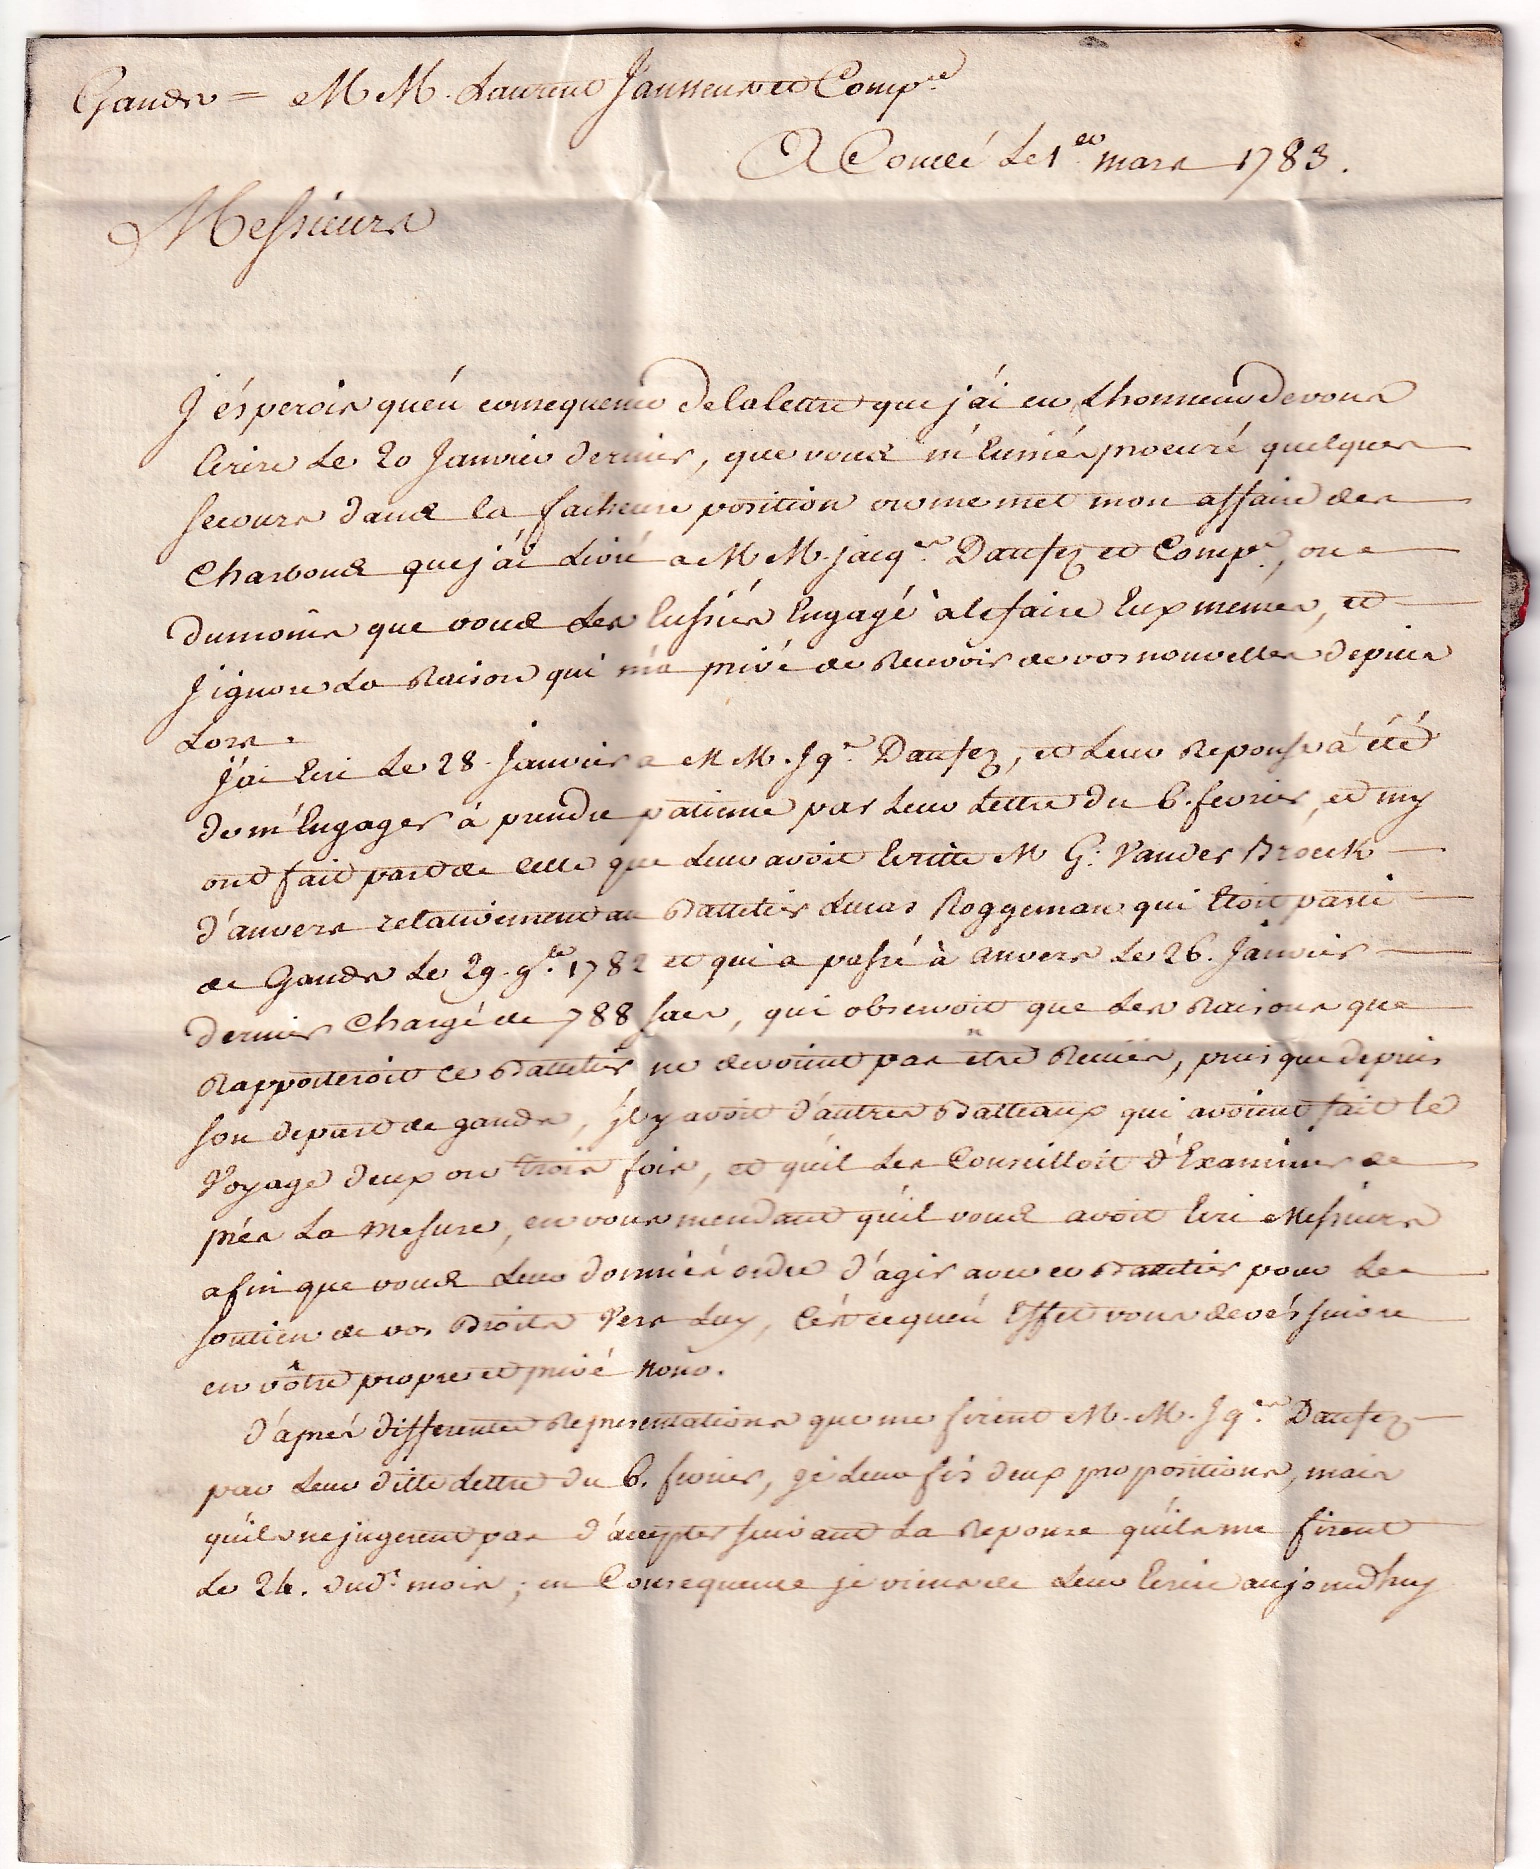 Gands = M M. Laurent Janssens et Comp.ie
A Condé Le 1.er mars 1783.
Messieurs
J'ésperois qu'én consequence de la lettre que j'ái eu Lhonneur de vous
Ecrire Le 20 Janvier dernier, que vous m'Eussiés procuré quelques
secours dans la facheuse position ou me met mon affaire des
Charbons que j'ái Livré a M M. jacq.es Daufez et Comp.e, ou
dumoins que vous Les Eussiés Engagé à le faire Eux memes, et
J'ignore La Raison qui m'a privé de Recevoir de vos nouvelles depuis
Lors.
J'ai Ecri Le 28 Janvier a M M. Jq.s Daufez, et Leur Reponse á été
de m'Engager à prendre patience par Leur Lettre du 6. fevrier, et my
ont fait part de celle que Leur avoit Ecritte M G. Vander Broeck
d'anvers relativement au Battelier Lucas Roggeman qui Etoit parti
de Gands Le 29 9.bre 1782 et qui a passé à anvers Le 26. Janvier
dernier Chargé de 788 sacs, qui observoit que Les Raisons que
Rapporteroit ce Battelier ne devoint pas être Reciies, puis que depuis
son depart de gands, Jl y avoit d'autres Batteaux qui avoient fait le
Voyage deux ou trois fois, et quil Les Conseilloit d'Examiner de
prés La Mesure, en vous mendant qu'il vous avoit Ecri Messieurs
afin que vous Leur donniés ordre d'ágir avec ce Battelier pour Le
soutien de vos Droits Vers Luy, C'ést ce qu'en Effet vous devés suivre
en vôtre propre et privé nom.
D'aprés differentes Representations que me firent M. M. Jq.es Daufez
par Leur ditte Lettre du 6. fevrier, je Leur fis deux propositions, mais
qu'ils ne jugerent pas d'ácepter suivant La Reponse qu'ils me firent
Le 24. dud.t mois; en Consequence je viens de Leur Ecrire aujourdhuy